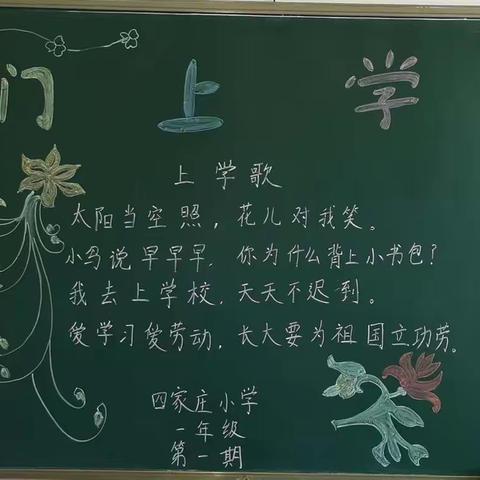 们上学
上学歌
太阳当空照，花儿对我笑。
小鸟说早早早，你为什么背上小书包？
我去上学校，天天不迟到。
爱学习爱劳动，长大要为祖国立功劳。
四家庄小学
一年级
第一期